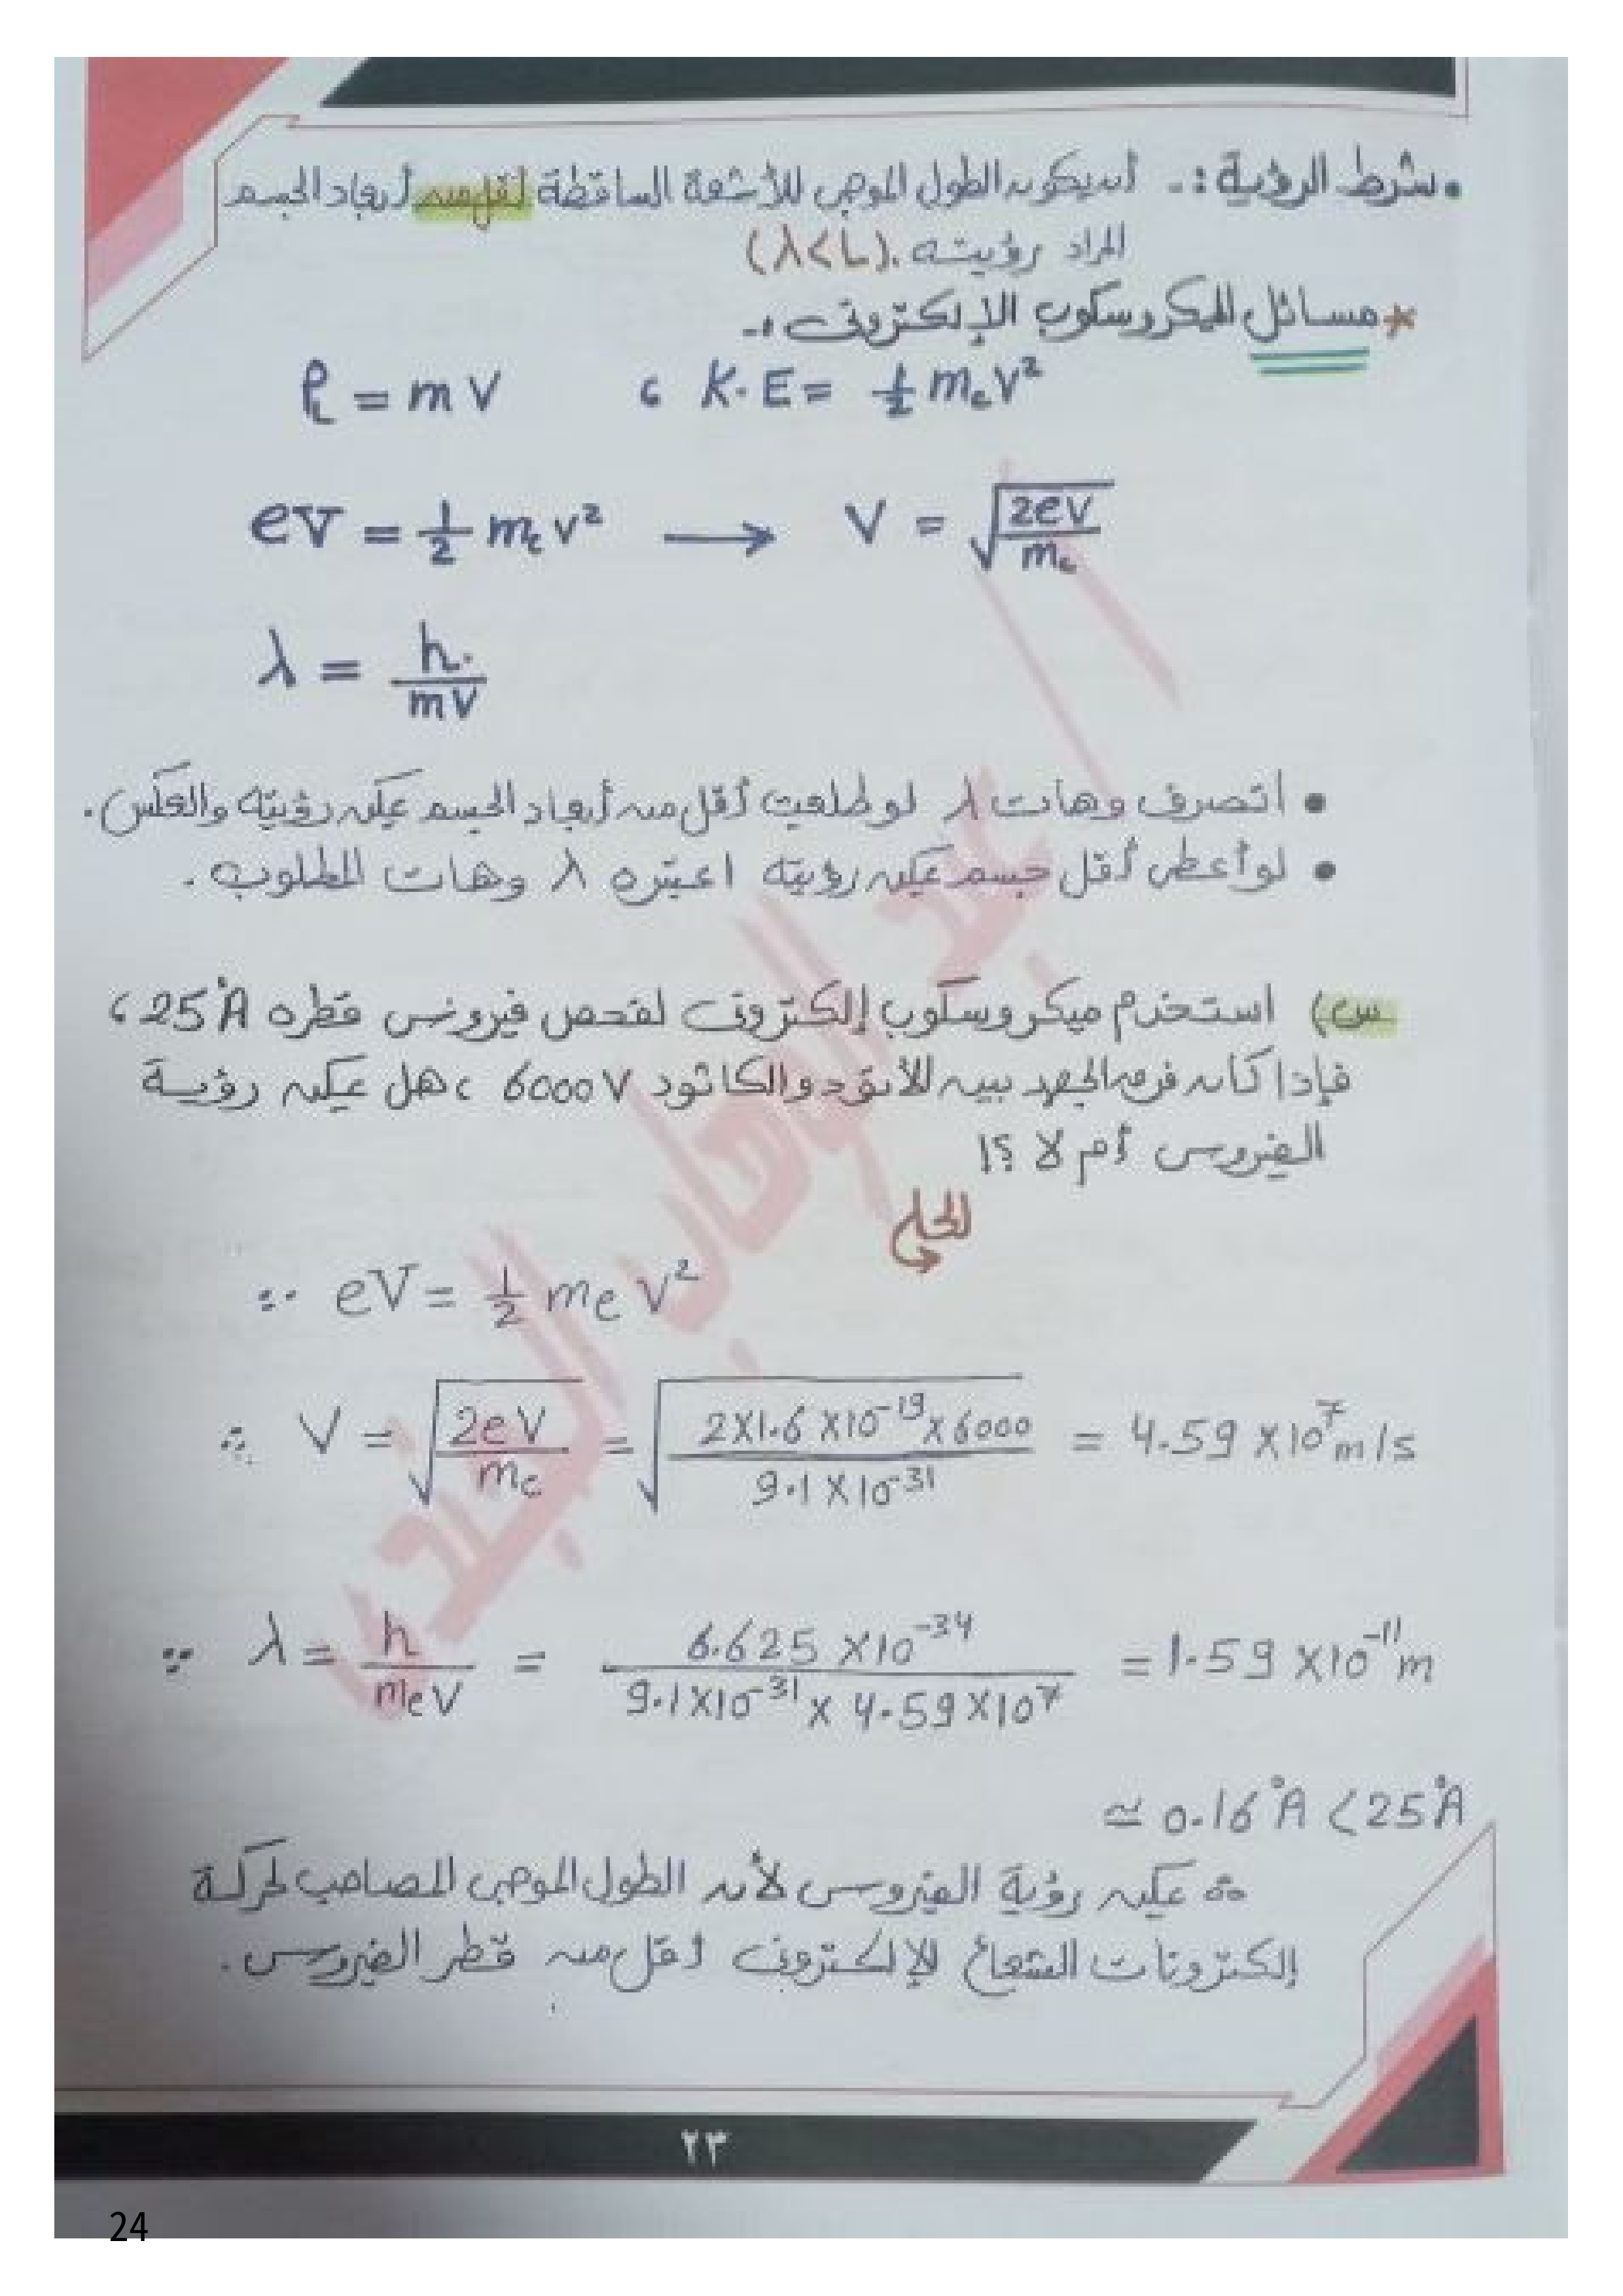 • شرط الرؤية :- أن يكون الطول الموجى للأشعة الساقطة أقل من أبعاد الجسم
المراد رؤيته . (λ<L)
* مسائل الميكروسكوب الإلكترونى :-
P_L = mV ، K.E = 1/2 m_e V²
eV = 1/2 m_e V² → V = √(2eV/m_e)
λ = h/mV
• أتصرف وهات λ لو طلعت أقل من أبعاد الجسم يمكن رؤيته والعكس .
• لو أعطى أقل جسم يمكن رؤيته اعتبره λ وهات المطلوب .
س) استخدم ميكروسكوب إلكترونى لفحص فيروس قطره 25 Å ،
فإذا كان فرق الجهد بين الأنود والكاثود 6000 V ، هل يمكن رؤية
الفيروس أم لا ؟!
الحل
∵ eV = 1/2 m_e V²
∴ V = √(2eV/m_e) = √(2×1.6×10⁻¹⁹×6000 / 9.1×10⁻³¹) = 4.59 ×10⁷ m/s
∵ λ = h/m_eV = 6.625 ×10⁻³⁴ / 9.1×10⁻³¹ × 4.59×10⁷ = 1.59 ×10⁻¹¹ m
≃ 0.16 Å < 25 Å
∴ يمكن رؤية الفيروس لأن الطول الموجى المصاحب لحركة
إلكترونات الشعاع الإلكترونى أقل من قطر الفيروس .
٢٣
24